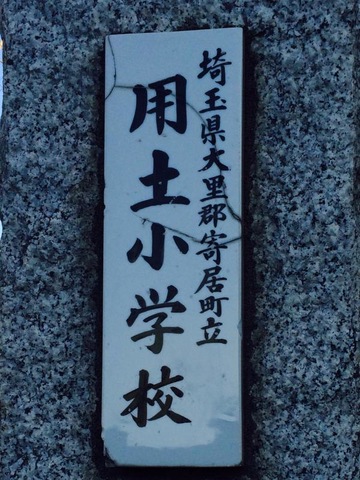 埼玉県大里郡寄居町立
用土小学校